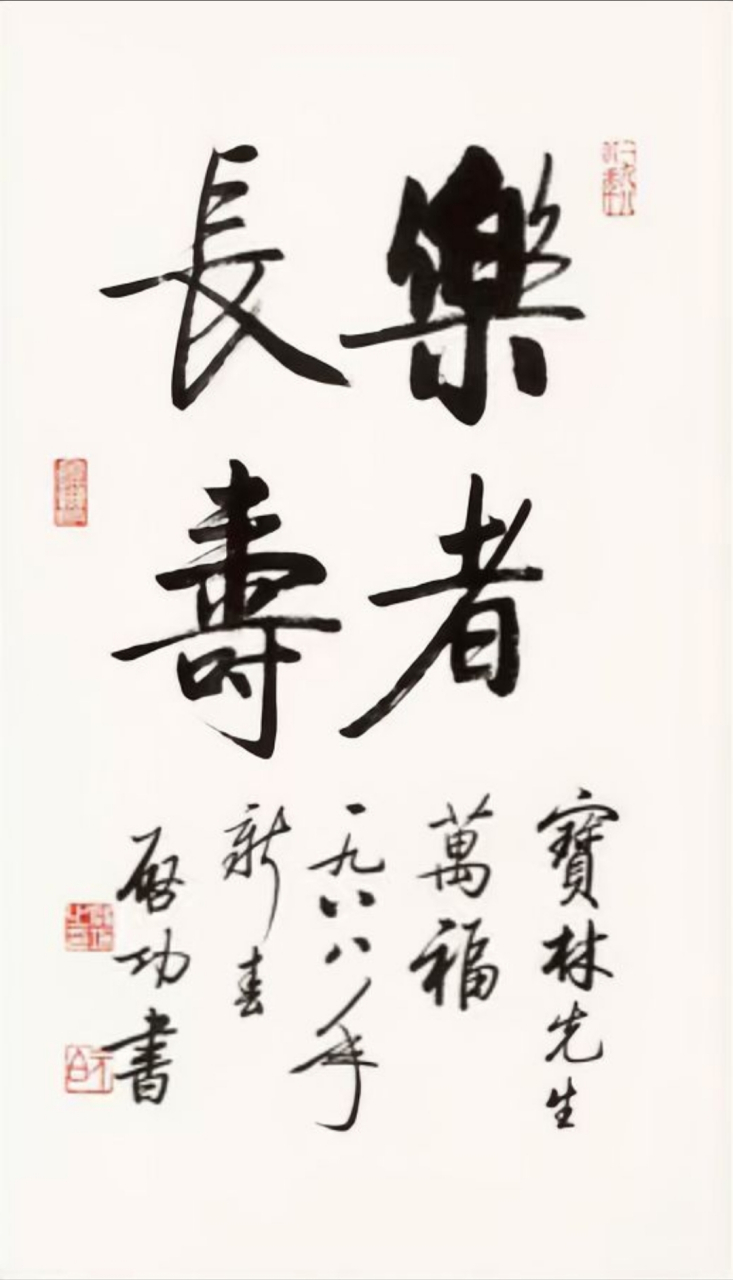 樂者
長壽
寶林先生
萬福
一九八八年
新春
啓功書